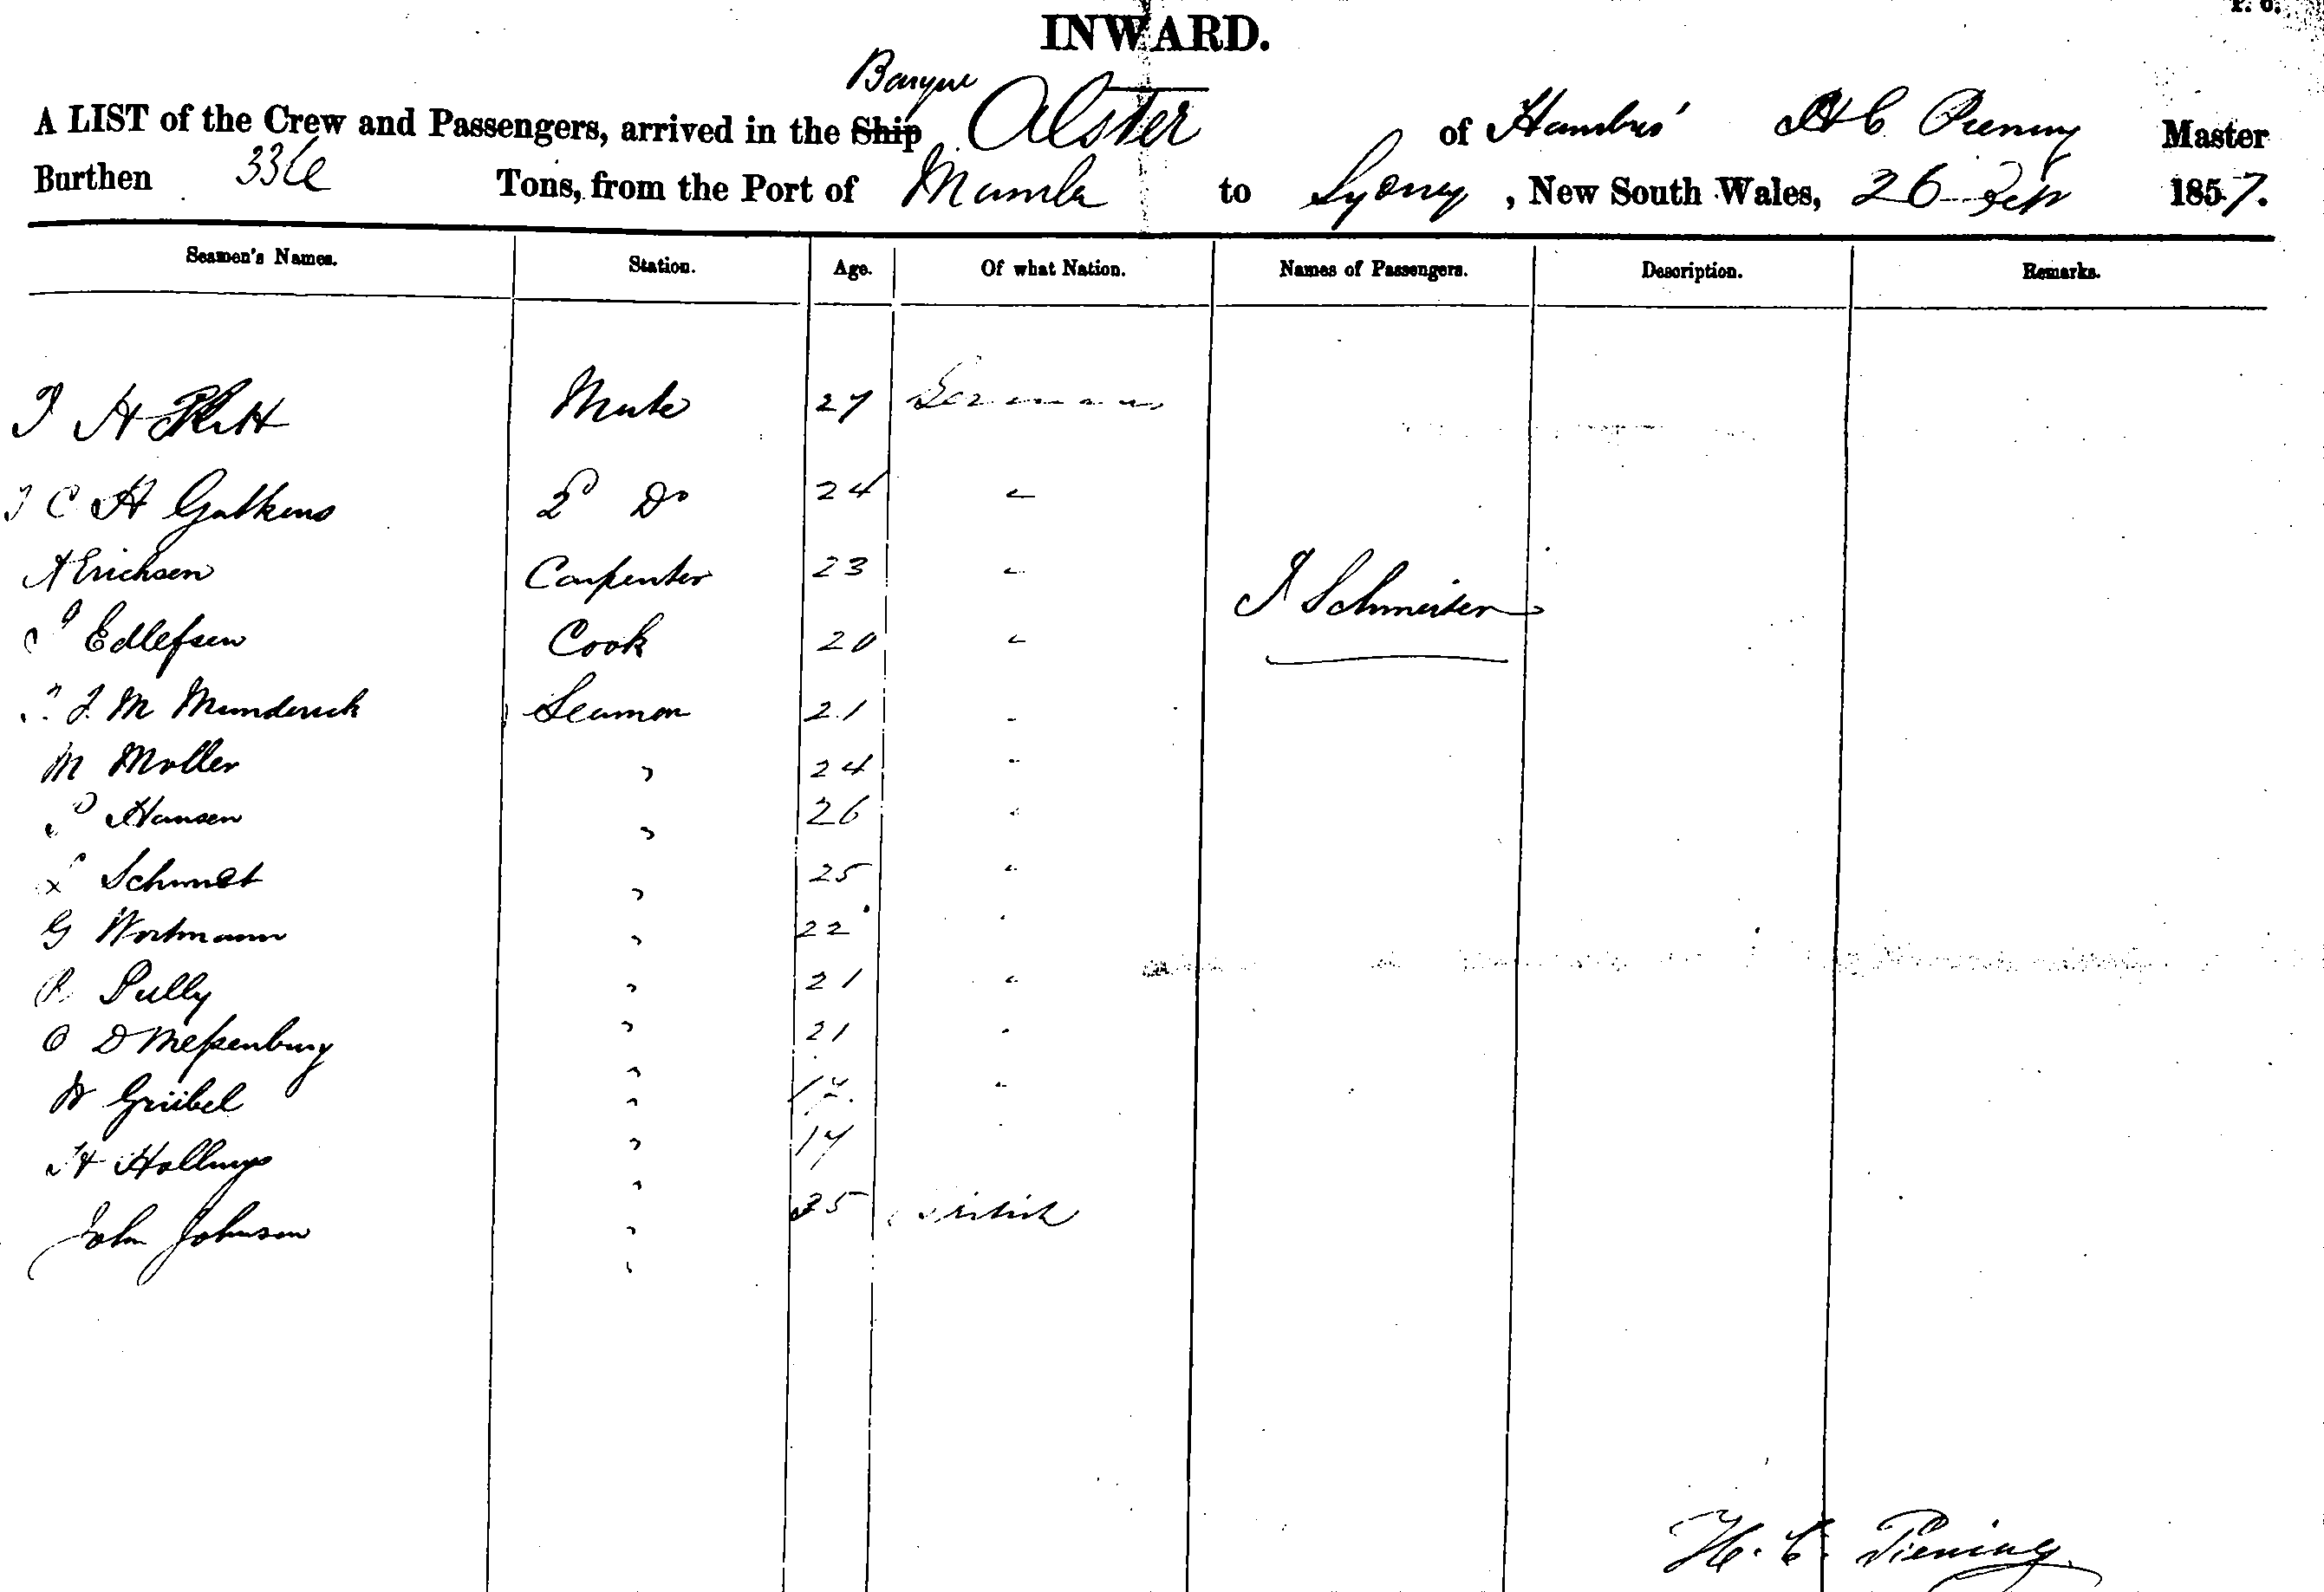 INWARD.
Barque
A LIST of the Crew and Passengers, arrived in the Ship Alster of H C Piening Master
Burthen 336 Tons, from the Port of Manila to Sydney, New South Wales, 26 1857.
Seamen's Names. Station. Age. Of what Nation. Names of Passengers. Description. Remarks.
H Mate 27 Germans
C H Gatkens 2d Do 24 "
A Erichsen Carpenter 23 "
J Schmeisser
Edlefsen Cook 20 "
J. M Munderick Seaman 21 "
M Moller " 24 "
Hansen " 26 "
Schmidt " 25 "
G Wortmann " 22 "
P. Pully " 21 "
O D Meßenburg " 21 "
W Grübel " 17 "
H Hollings " 17
John Johnson " 35 British
H. C. Piening